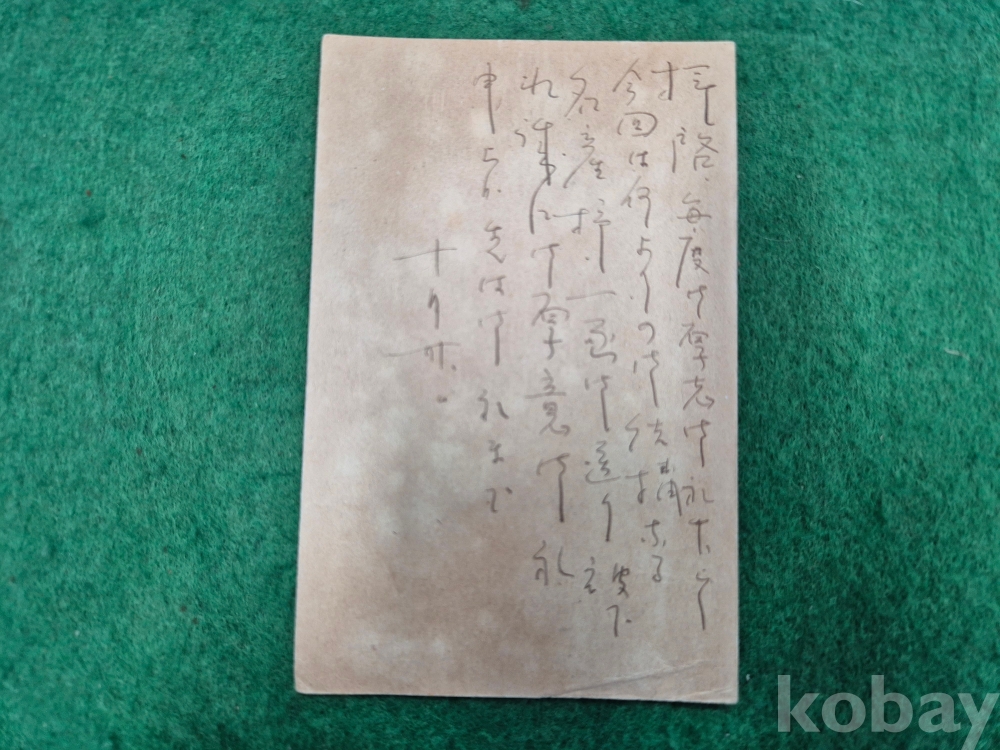 拝啓、毎度御厚志御礼申上
今回は何よりの御結構なる
名産柿一函御送り被下
御厚意御礼
申上候 先は御礼まで
十月廿
kobay